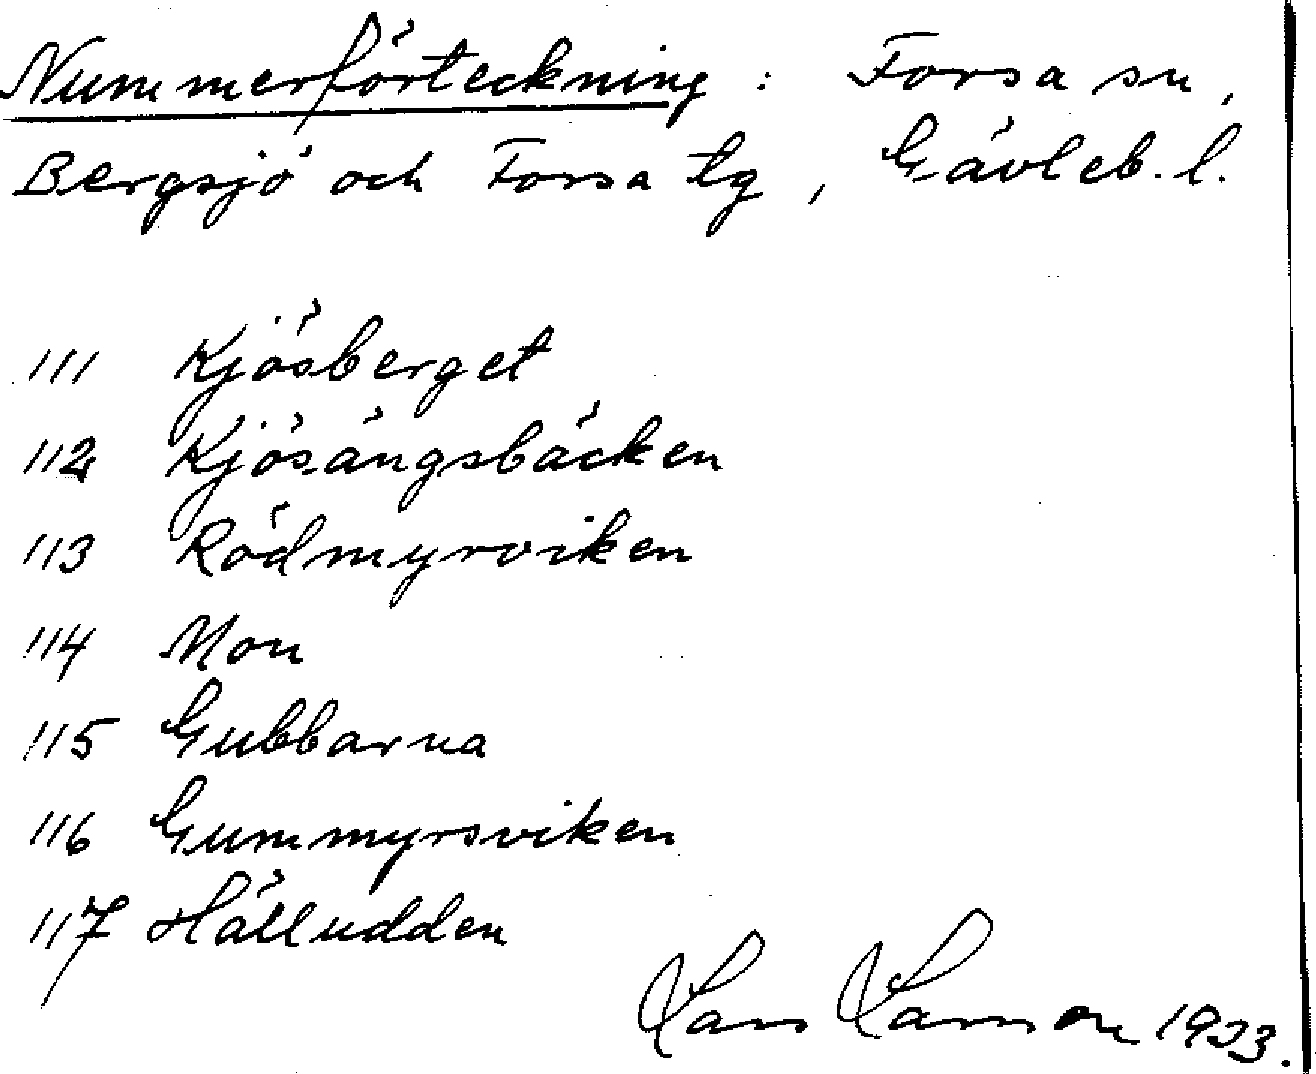 Nummerförteckning : Forsa sn,
Bergsjö och Forsa tg, Gävleb. l.
111 Kjösberget
112 Kjösängsbäcken
113 Rödmyrviken
114 Mon
115 Gubbarna
116 Gummyrsviken
117 Hälludden
Lars Larsson 1923.